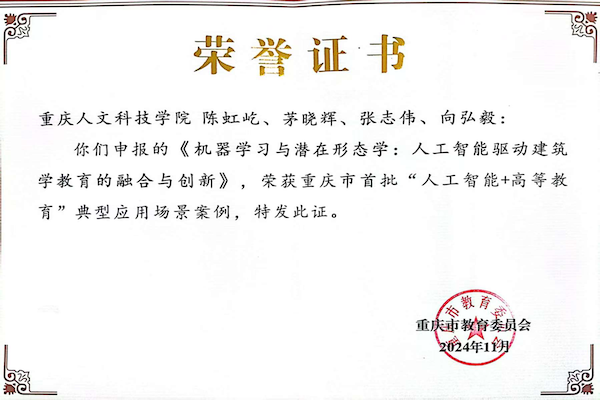 荣誉证书
重庆人文科技学院 陈虹屹、茅晓辉、张志伟、向弘毅：
你们申报的《机器学习与潜在形态学：人工智能驱动建筑
学教育的融合与创新》，荣获重庆市首批“人工智能+高等教
育”典型应用场景案例，特发此证。
重庆市教育委员会
2024年11月